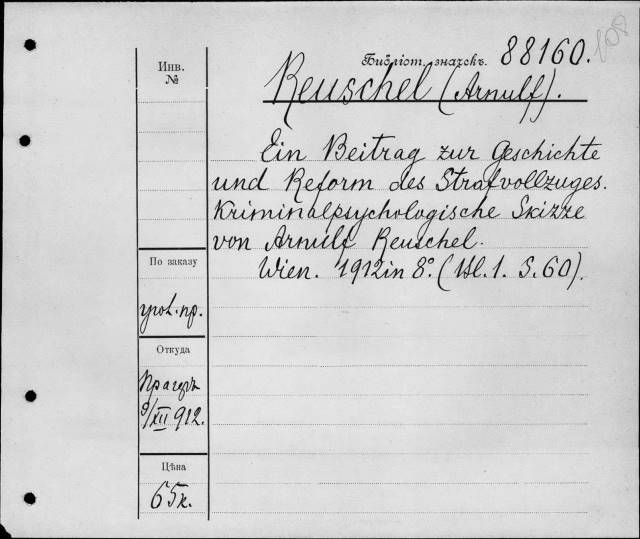 108
Библіот. значекъ. 88160.
Инв.
№
Reuschel (Arnulf).
Ein Beitrag zur Geschichte
und Reform des Strafvollzuges.
Kriminalpsychologische Skizze
von Arnulf Reuschel.
Wien. 1912 in 8°. (Bl. 1. S. 60).
По заказу
угол. пр.
Откуда
9/XII 912.
Цѣна
65к.